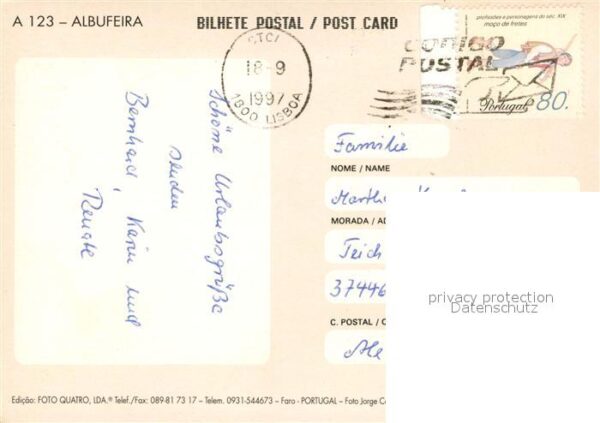 A 123 – ALBUFEIRA
BILHETE POSTAL / POST CARD
CTCI
18-9
1997
1800 LISBOA
CÓDIGO
POSTAL
profissões e personagens do séc. XIX
moço de fretes
Portugal 80.
Schöne Urlaubsgrüße
senden
Bernhard, Karin und
Renate
Familie
NOME / NAME
MORADA / AD
Teich
37446
C. POSTAL / C
privacy protection
Datenschutz
Edição: FOTO QUATRO, LDA.® Telef./Fax: 089-81 73 17 – Telem. 0931-544673 – Faro - PORTUGAL – Foto Jorge C